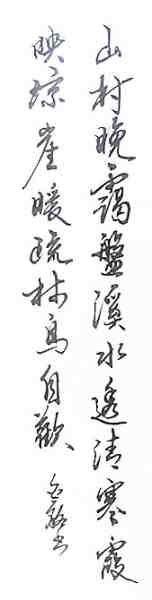 山村晚霭盤溪水透清寒霞
映琼崖暖疏林鳥自歡